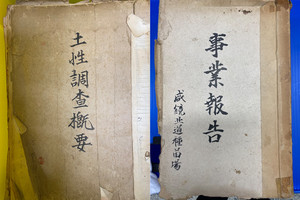 土性調査概要
事業報告
咸鏡共進種苗場